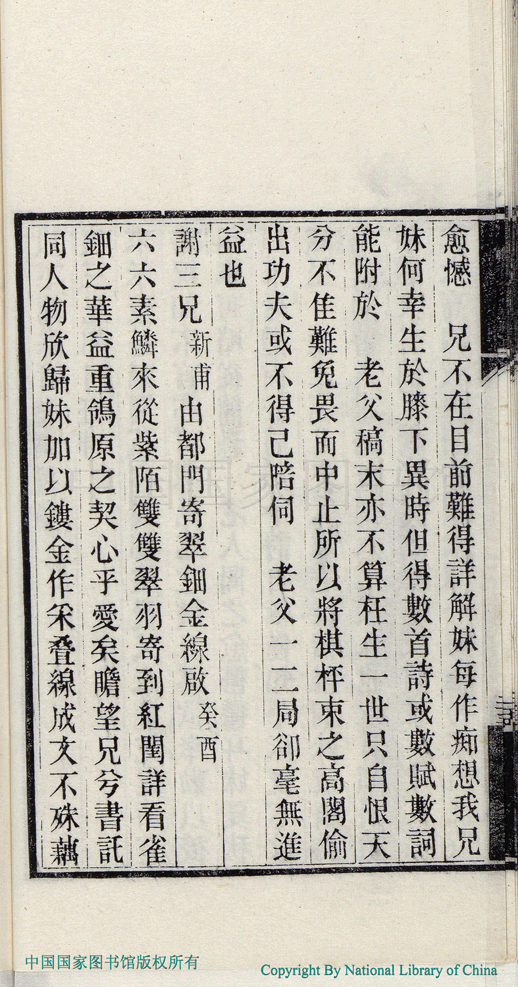 愈憾　兄不在目前難得詳解妹每作痴想我兄
妹何幸生於膝下異時但得數首詩或數賦數詞
能附於　老父稿末亦不算枉生一世只自恨天
分不佳難免畏而中止所以將棋枰束之高閣偷
出功夫或不得已陪伺　老父一二局卻毫無進
益也
謝三兄新甫由都門寄翠鈿金線啟癸酉
六六素鱗來從紫陌雙雙翠羽寄到紅閨詳看雀
鈿之華益重鴒原之契心乎愛矣瞻望兄兮書託
同人物欣歸妹加以鏤金作釆叠線成文不殊藕
中国国家图书馆版权所有
Copyright By National Library of China